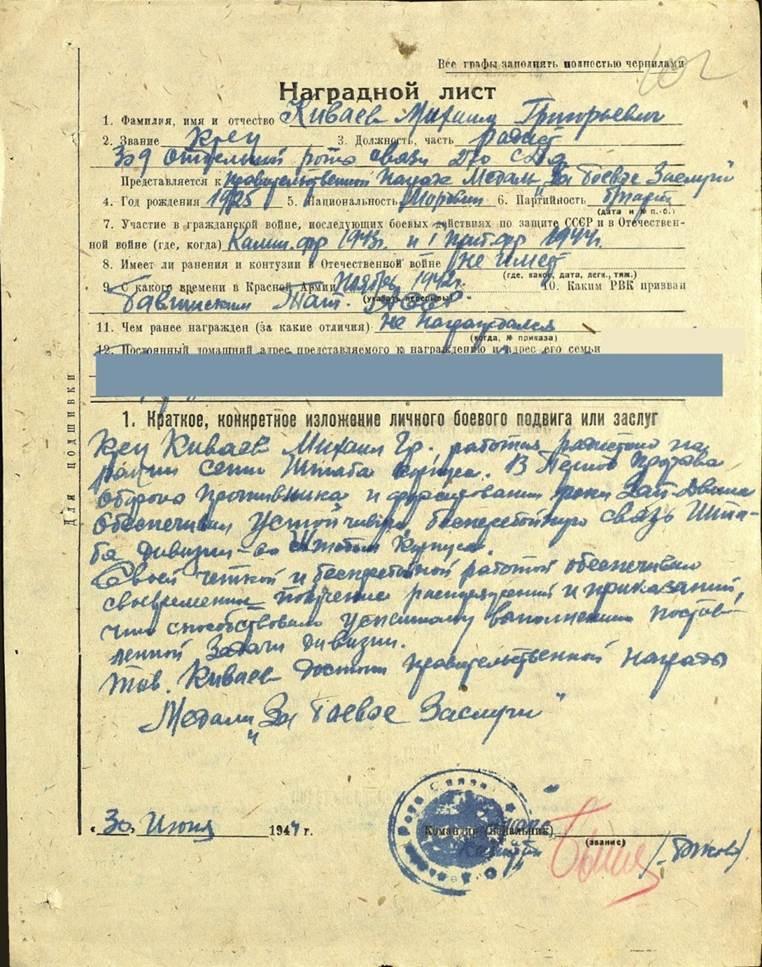 102
Все графы заполнять полностью чернилами
Наградной лист
1. Фамилия, имя и отчество Киваев Михаил Григорьевич
2. Звание Кр-ец 3. Должность, часть радист
309 Отдельной роты связи
Представляется к правительственной награде Медали „За боевые Заслуги"
4. Год рождения 1925 5. Национальность Мордвин 6. Партийность
(дата и № п.-б.)
7. Участие в гражданской войне, последующих боевых действиях по защите СССР и в Отечествен-
ной войне (где, когда) Калин. фр 1943г. и 1 Приб. фр 1944г.
8. Имеет ли ранения и контузии в Отечественной войне Не имеет
(где, какое, дата, легк., тяж.)
9. С какого времени в Красной Армии Ноябрь 1942г. 10. Каким РВК призван
Тат. АССР.
(указать
11. Чем ранее награжден (за какие отличия) не награждался
(когда, № приказа)
12. Постоянный домашний адрес представляемого к награждению и адрес его семьи
Для подшивки
1. Краткое, конкретное изложение личного боевого подвига или заслуг
Киваев Михаил Гр. работая радистом на
рации сети Штаба Корпуса. В период прорыва
обороны противника и форсировании реки Зап-Двина
обеспечивал устойчивую, бесперебойную связь Шта-
ба дивизии со Штабом Корпуса.
Своей четкой и бесперебойной работой обеспечивал
своевременное получение распоряжений и приказаний,
чем способствовал успешному выполнению постав-
ленной Задачи дивизии.
Тов. Киваев достоин правительственной награды
Медали „За боевые Заслуги"
« 30 Июня 1944 г.
Командир (начальник)
(звание)
Капитан